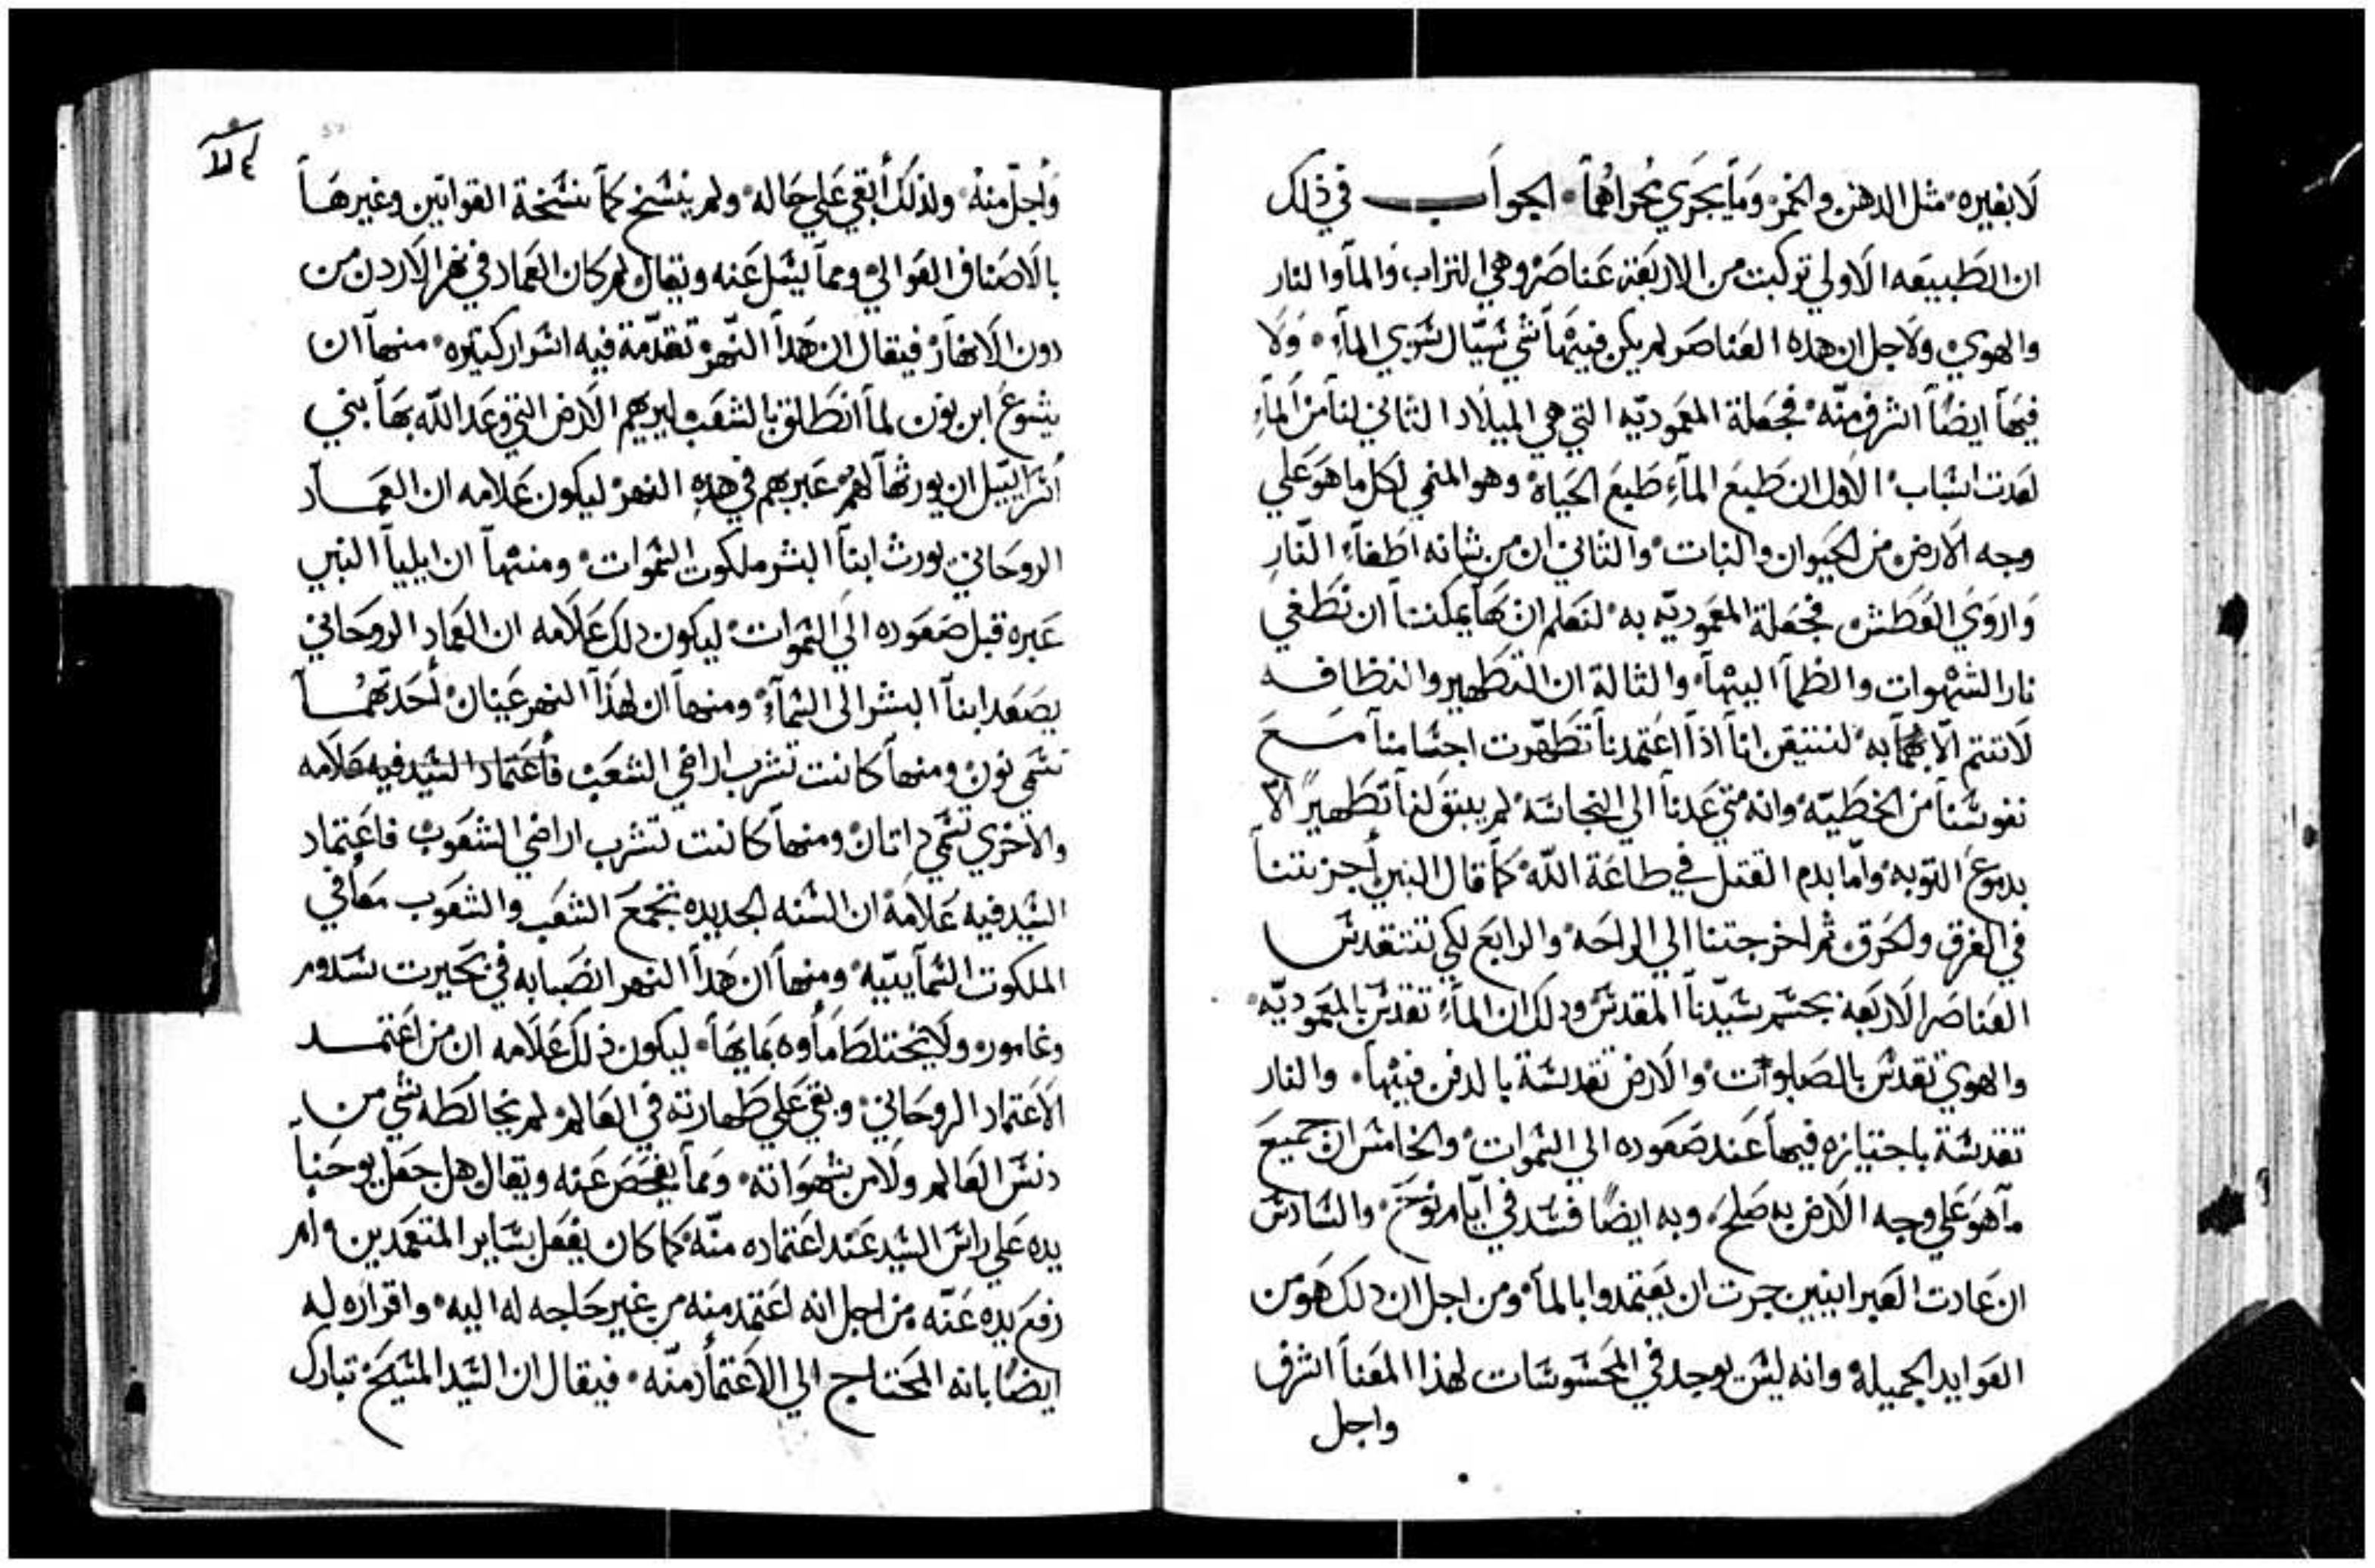 لا بغيره مثل الدهن والخمر وما يجري مجراهما الجواب في ذلك
ان الطبيعه الاولي تركبت من الاربعة عناصر وهي التراب والمآ والنار
والهوي ولاجل ان هده العناصر لم يكن فيها شي سيال سوي المآء ولا
فيها ايضاً اشرف منه فجعلة المعموديه التي هي الميلاد الثاني لنا من المآء
لعدت اسباب الاول ان طبع المآء طبع الحياة وهو المنمي لكل ما هو علي
وجه الارض من الحيوان والنبات والثاني ان من شانه اطفآء النار
واروي العطش فجعلة المعموديه به لنعلم ان بها يمكننا ان نطفي
نار الشهوات والظمآ اليها والثالة ان التطهير والنظافه
لا تتم الا بهما به لنتيقن انا اذا اعتمدنا تطهرت اجسامنا مع
نفوسنا من الخطيه وانه متي عدنا الي النجاسه لم يبق لنا تطهيرًا الا
بدموع التوبه واما بدم القتل في طاعة الله كما قال النبي اجزتنا
في الغرق والحرق ثم اخرجتنا الي الراحه والرابع لكي تتقدس
العناصر الاربعه بجسم سيدنا المقدس ودلك ان المآء تقدس بالمعموديه
والهوي تقدس بالصلوات والارض تقدسة بالدفن فيها والنار
تقدسة باجتيازه فيها عند صعوده الي السموات والخامس ان جميع
مآ هو علي وجه الارض به صلح وبه ايضًا فسد في ايام نوح والسادس
ان عادت العبرانيين جرت ان يعتمدوا بالمآ ومن اجل ان دلك هو من
العوايد الجميله وانه ليس يوجد في المحسوسات لهذا المعنآ اشرف
واجل
واجل منه ولذلك أبقي علي حاله ولم ينسخ كما نسخة القوانين وغيرها
بالاصناف الغوالي ومما يسل عنه ويقال لم كان العماد في نهر الاردن من
دون الانهار فيقال ان هدا النهر تقدمة فيه اسرار كتيره منها ان
يشوع ابن نون لما انطلق بالشعب ليريهم الارض التي وعد الله بها بني
اسراييل ان يورثها لهم عبر بهم في هده النهر ليكون علامه ان العماد
الروحاني يورث ابنآ البشر ملكوت السموات ومنها ان ايليا النبي
عبره قبل صعوده الي السموات ليكون دلك علامه ان العماد الروحاني
يصعد ابنآ البشر الي السمآء ومنها ان لهذا النهر عينان أحدتهما
تسمي نون ومنها كانت تشرب اراضي الشعب فاعتماد السيد فيه علامه
والاخري تسمي داتان ومنها كانت تشرب اراضي الشعوب فاعتماد
السيد فيه علامة ان السنه الجديده تجمع الشعب والشعوب معاً في
الملكوت السمآييه ومنها ان هدا النهر انصبابه في بحيرت سدوم
وغامور ولا يختلط مآوه بمايها ليكون ذلك علامه ان من اعتمد
الاعتماد الروحاني وبقي علي طهارته في العالم لم يخالطه شي من
دنس العالم ولا من شهواته ومما يفحص عنه ويقال هل جعل يوحنا
يده علي راس السيد عند اعتماده منه كما كان يفعل بساير المتعمدين ام
رفع يده عنه من اجل انه اعتمد منه من غير حاجه له اليه واقراره له
ايضًا بانه المحتاج الي الاعتماد منه فيقال ان السيد المسيح تبارك